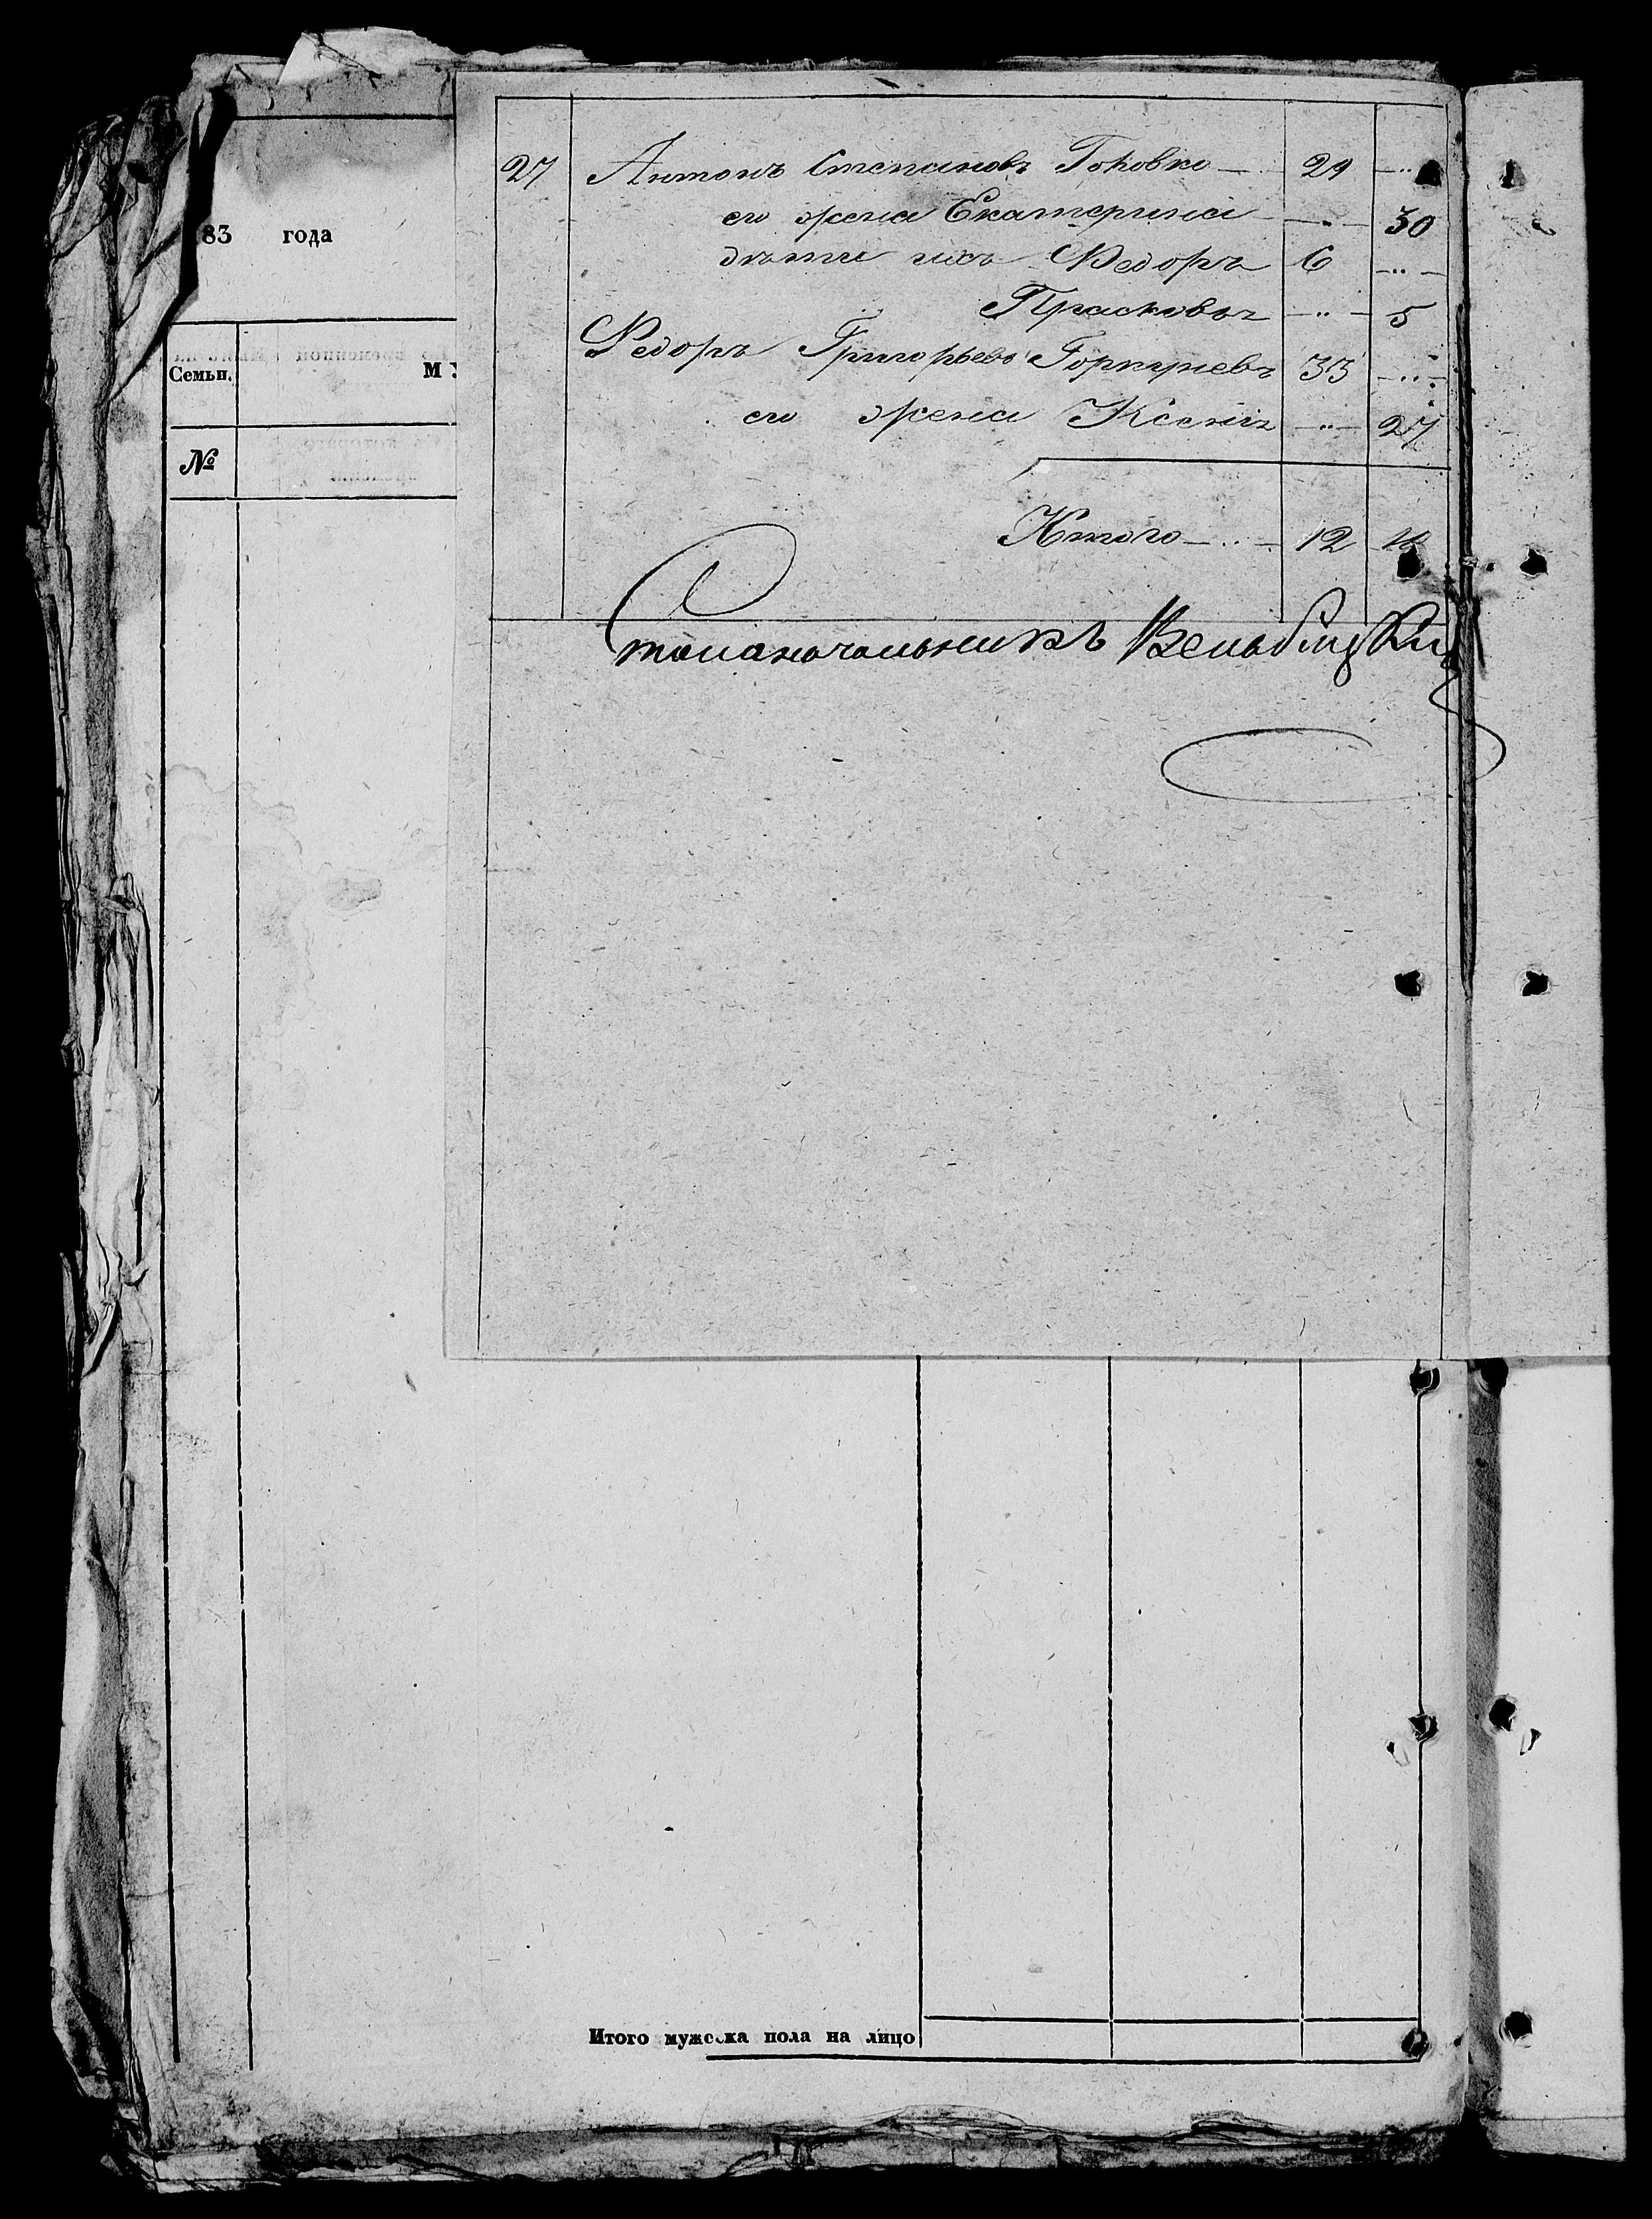 83 года
Семьи.
М
№
27 Антонъ Степановъ Головко — 29 —
его жена Екатерина — 30
дѣти ихъ Ѳедоръ 6 —
Прасковья — 5
Ѳедоръ Григорьевъ 33 —
его жена Ксенія — 27
Итого — 12
Столоначальникъ
Итого мужеска пола на лицо